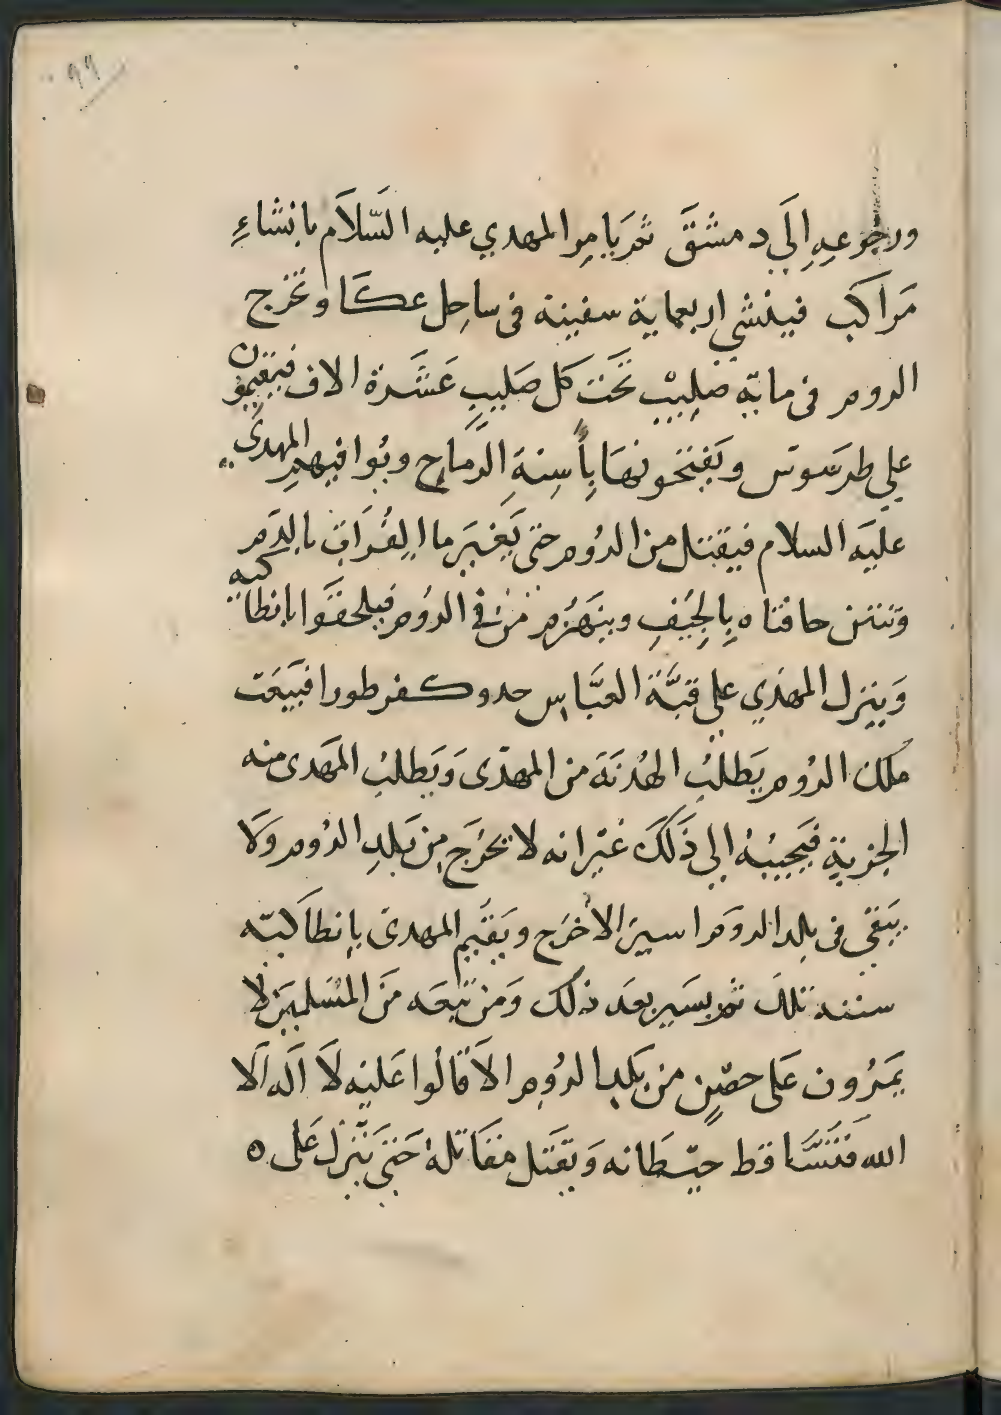 ٩٩
ورجوعهِ إلَي دمشقَ ثم يَامر المهدي عليه السَّلاَم بانشاءِ
مَراكب فينشي اربعماية سفينة فى ساحِل عكا وتخرج
الروم فى مايةِ صليبْ تحَت كل صَليبٍ عَشَرة الاف فيقيمون
علي طرسوس ويَفتحونهَا باَسِنةِ الرماح ويُوافيهم المهدىَ
عليَه السلام فيقتل من الروُم حتى يَغيَر ما الفُراتِ بالدَم
وتنتن حافتاه بِالجِيَفِ وينَهَزم مَن في الروُم فيلحقَوا بانطاكيه
وَينزل المهَدي علي قبَّة العبَّاس حدو كفر طورا فيَبعَت
ملك الرُوم يَطلبُ الهُدنَة من المهدَى وَيَطلبُ المَهدى منه
الجزيةِ فيَجيبُهُ إلي ذَلكَ غيَر انه لا يخَرج مِن بَلدِ الروُم وَلا
يَبقي فى بلد الروَم اسيرَ الا خرَج ويَقيَم المهدىَ بإنطاكيّه
سنته تلكَ ثم يسَير بعَد ذلك وَمن تبعَه مَن المُسَلميَن لا
يَمرُون عَلى حصَنٍ من بَلد الروُم الاَ قالُوا عَليَه لاَ اله الا
الله فتَتَسَاقط حيَطانه وَيقتَل مقاتلهُ حَتى يَنَزل عَلى ه